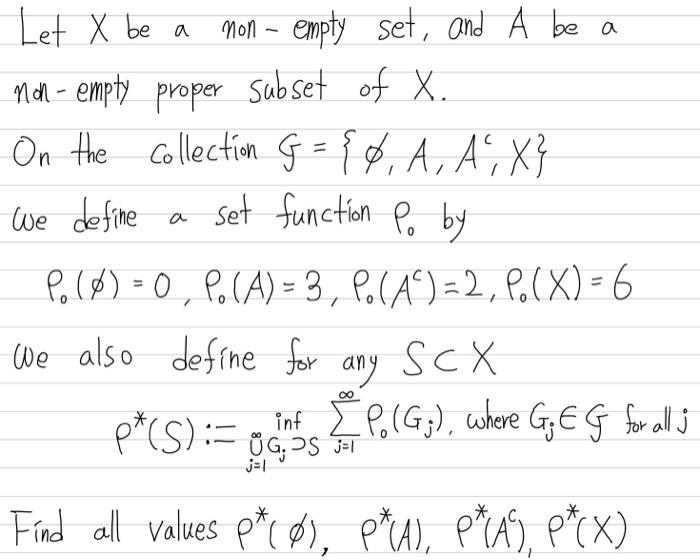 Let X be a non-empty set, and A be a
non-empty proper subset of X.
On the collection 𝒢 = {∅, A, Aᶜ, X}
we define a set function ρ₀ by
ρ₀(∅) = 0, ρ₀(A) = 3, ρ₀(Aᶜ) = 2, ρ₀(X) = 6
We also define for any S ⊂ X
ρ*(S) := inf_{⋃_{j=1}^{∞} G_j ⊃ S} ∑_{j=1}^{∞} ρ₀(G_j), where G_j ∈ 𝒢 for all j
Find all values ρ*(∅), ρ*(A), ρ*(Aᶜ), ρ*(X)